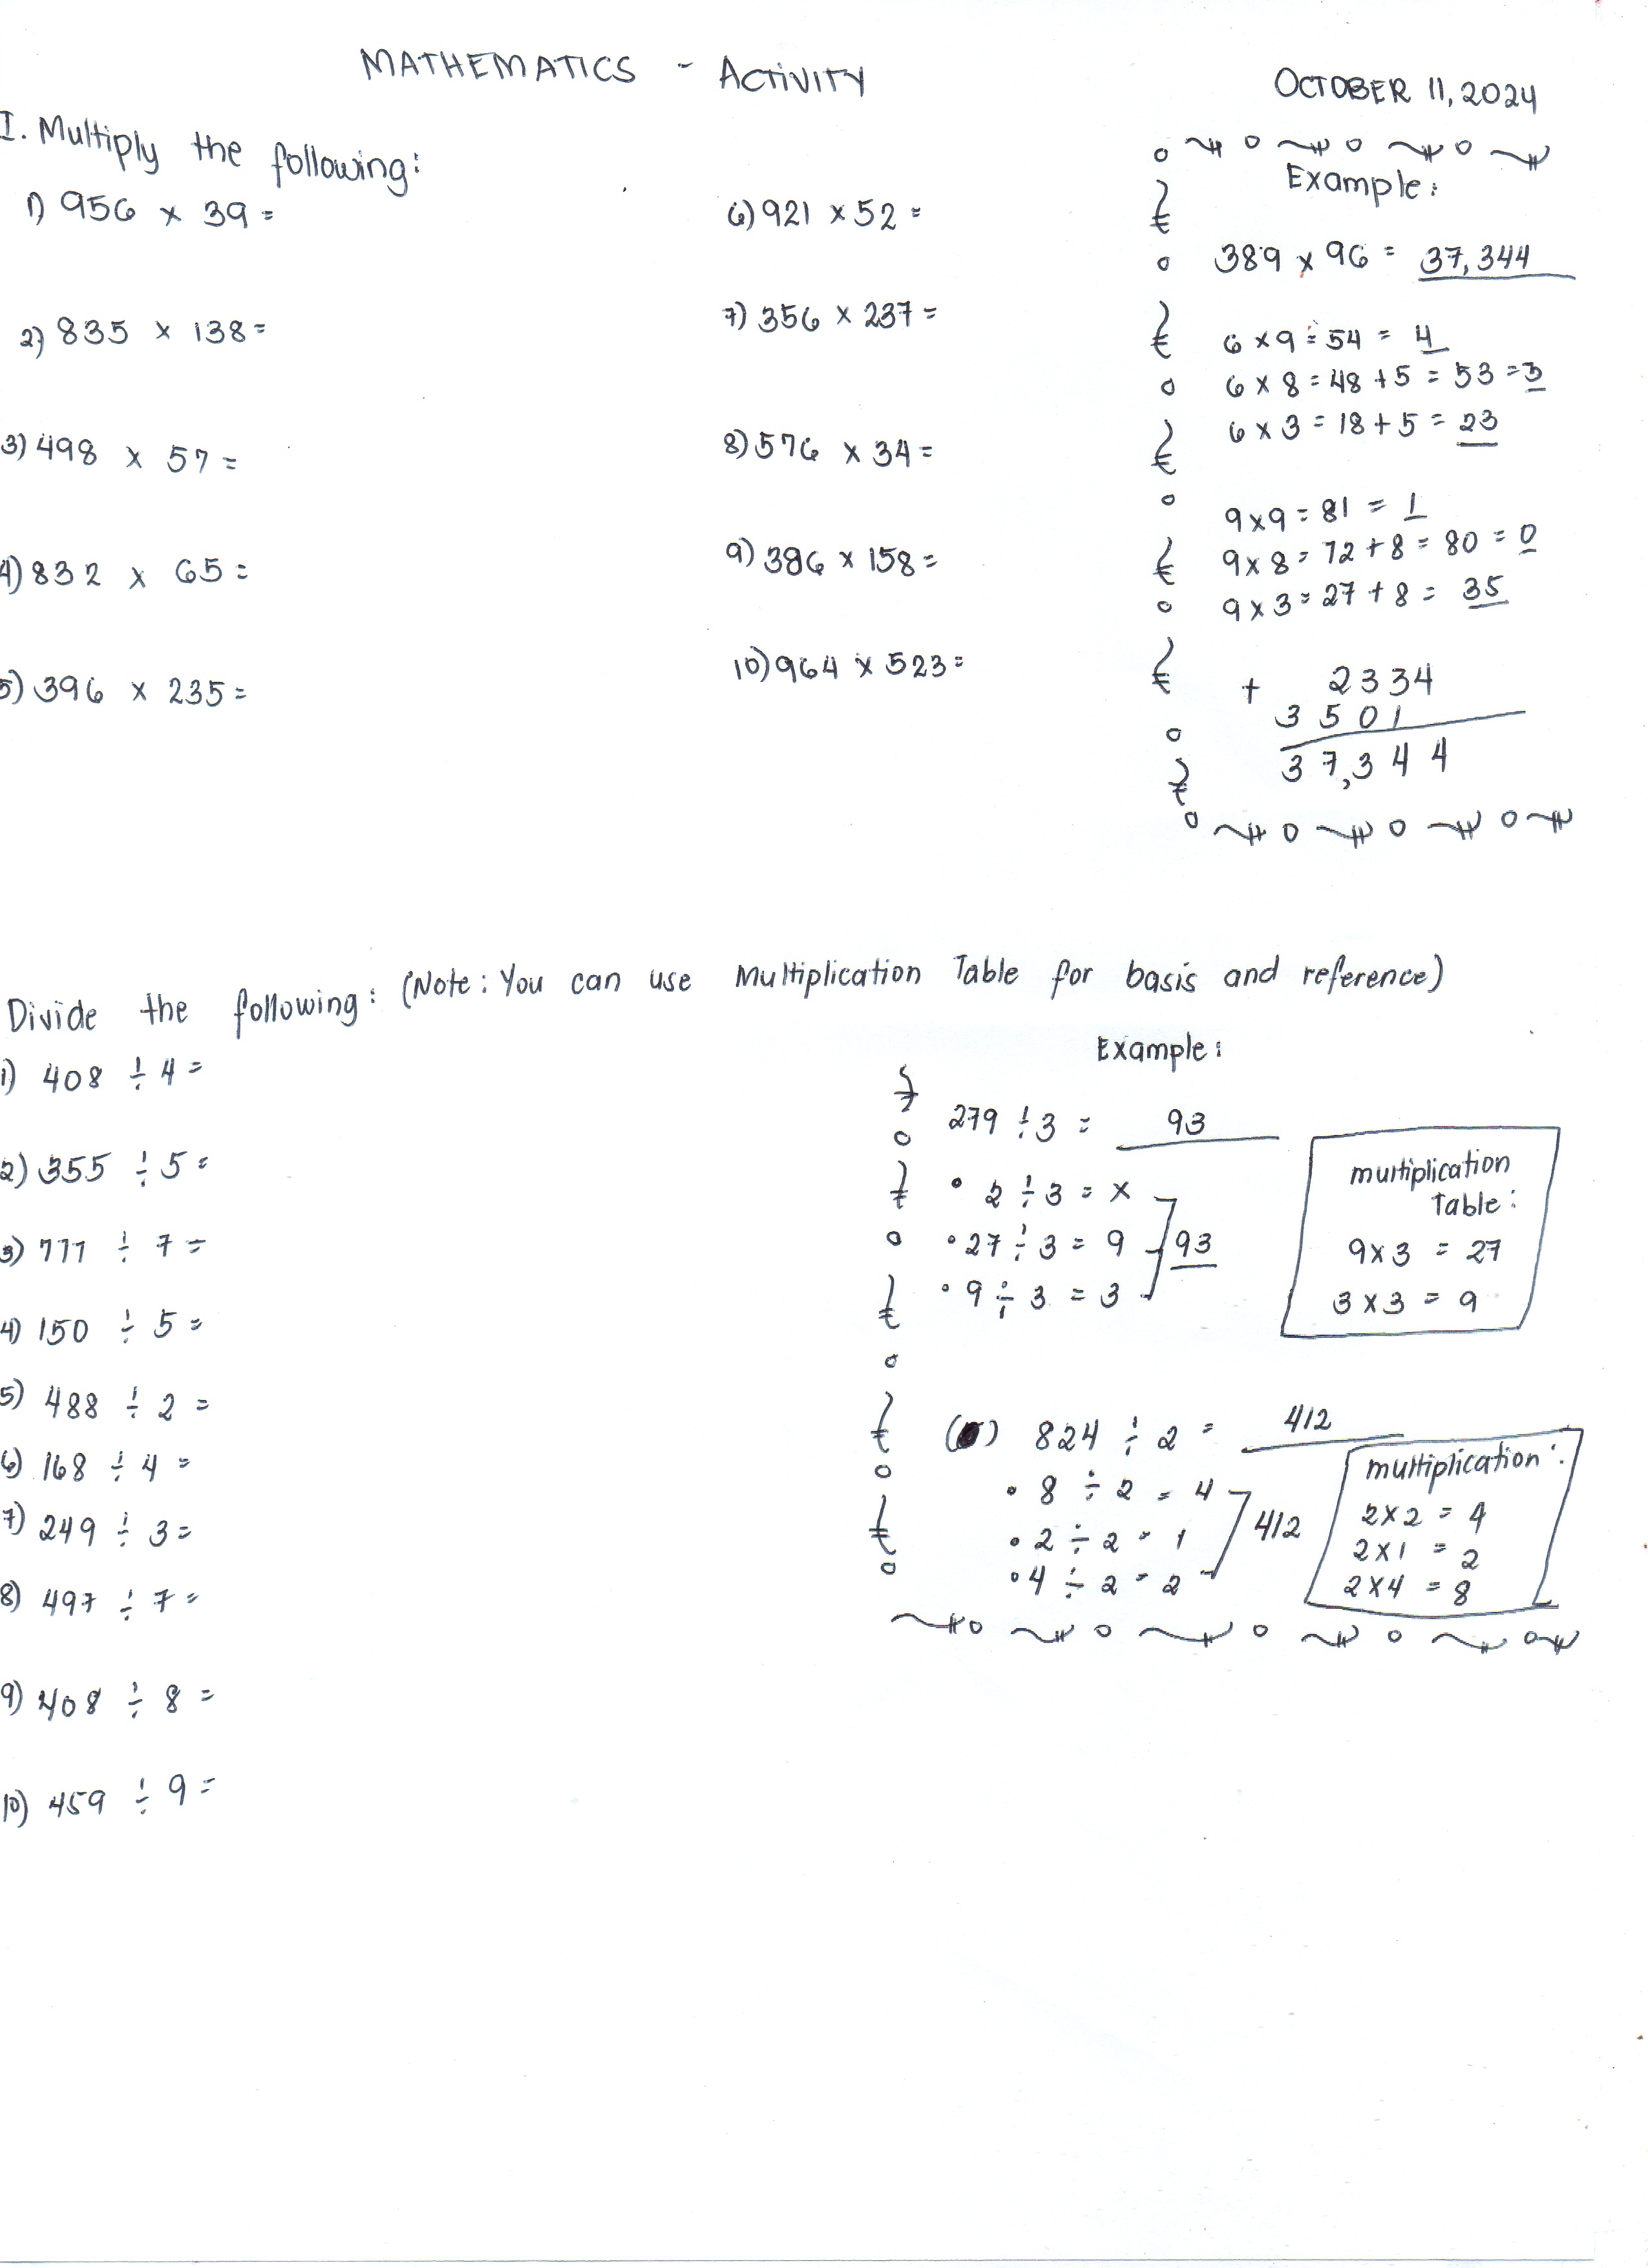 MATHEMATICS - ACTIVITY
OCTOBER 11, 2024
I. Multiply the following:
1) 956 x 39 =
2) 835 x 138 =
3) 498 x 57 =
4) 832 x 65 =
5) 396 x 235 =
6) 921 x 52 =
7) 356 x 237 =
8) 576 x 34 =
9) 386 x 158 =
10) 964 x 523 =
Example:
389 x 96 = 37,344
6 x 9 = 54 = 4
6 x 8 = 48 + 5 = 53 = 3
6 x 3 = 18 + 5 = 23
9 x 9 = 81 = 1
9 x 8 = 72 + 8 = 80 = 0
9 x 3 = 27 + 8 = 35
+ 2334
3501
37,344
Divide the following: (Note: You can use Multiplication Table for basis and reference)
1) 408 ÷ 4 =
2) 355 ÷ 5 =
3) 777 ÷ 7 =
4) 150 ÷ 5 =
5) 488 ÷ 2 =
6) 168 ÷ 4 =
7) 249 ÷ 3 =
8) 497 ÷ 7 =
9) 408 ÷ 8 =
10) 459 ÷ 9 =
Example:
279 ÷ 3 = 93
• 2 ÷ 3 = x
• 27 ÷ 3 = 9
• 9 ÷ 3 = 3
93
multiplication
Table:
9 x 3 = 27
3 x 3 = 9
824 ÷ 2 = 412
• 8 ÷ 2 = 4
• 2 ÷ 2 = 1
• 4 ÷ 2 = 2
412
multiplication:
2 x 2 = 4
2 x 1 = 2
2 x 4 = 8